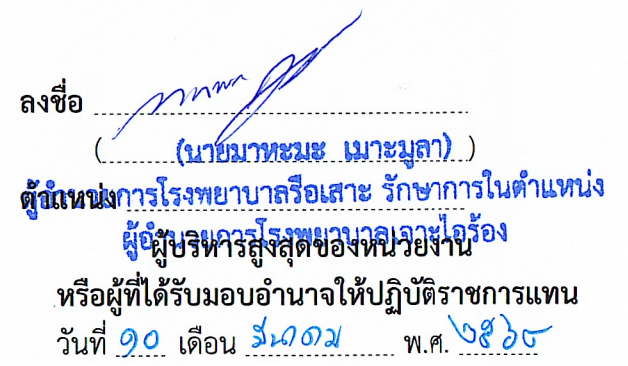 ลงชื่อ
(นายมาหะมะ เมาะมูลา)
ตำแหน่ง ผู้อำนวยการโรงพยาบาลรือเสาะ รักษาการในตำแหน่ง
ผู้อำนวยการโรงพยาบาลเจาะไอร้อง
ผู้บริหารสูงสุดของหน่วยงาน
หรือผู้ที่ได้รับมอบอำนาจให้ปฏิบัติราชการแทน
วันที่ ๑๐ เดือน มีนาคม พ.ศ. ๒๕๖๘